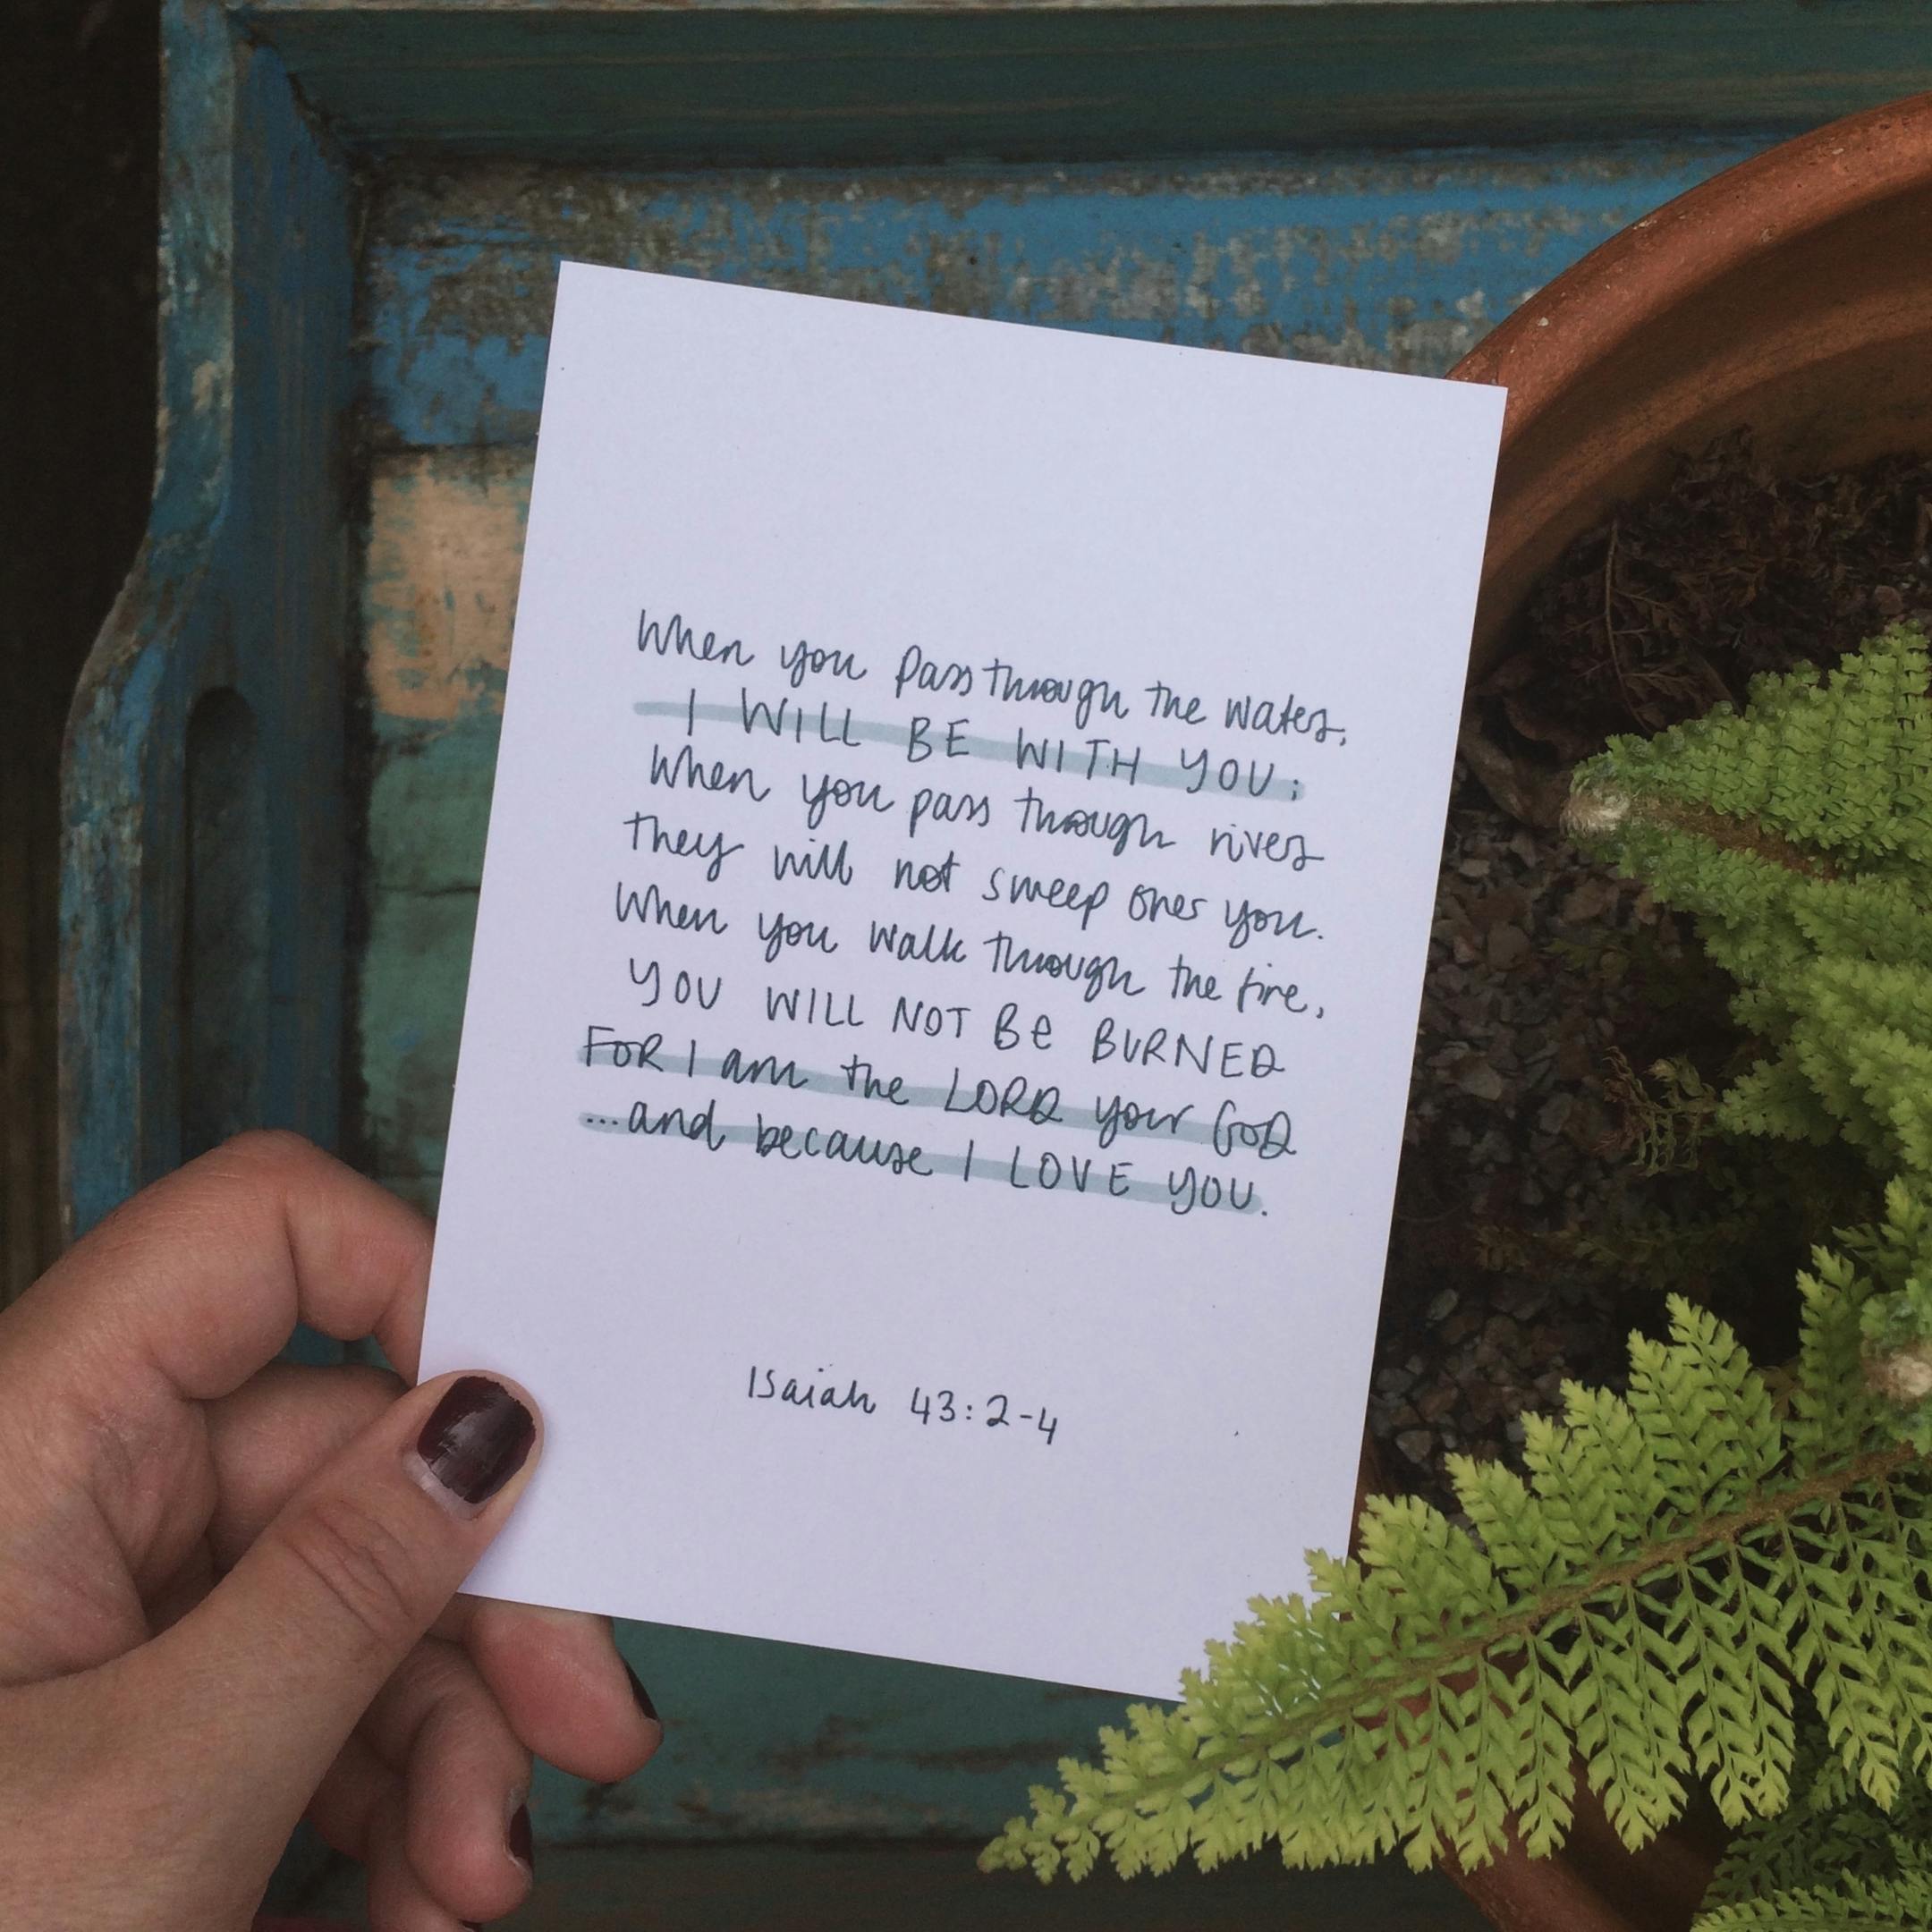 When you pass through the waters,
I WILL BE WITH YOU;
When you pass through rivers
they will not sweep over you.
When you walk through the fire,
YOU WILL NOT BE BURNED
FOR I am the LORD your GOD
...and because I LOVE YOU.
Isaiah 43:2-4